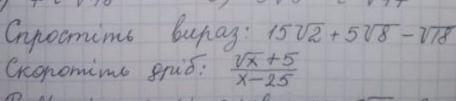 Спростіть вираз: 15√2 + 5√8 − √18
Скоротіть дріб: (√x + 5)/(x − 25)